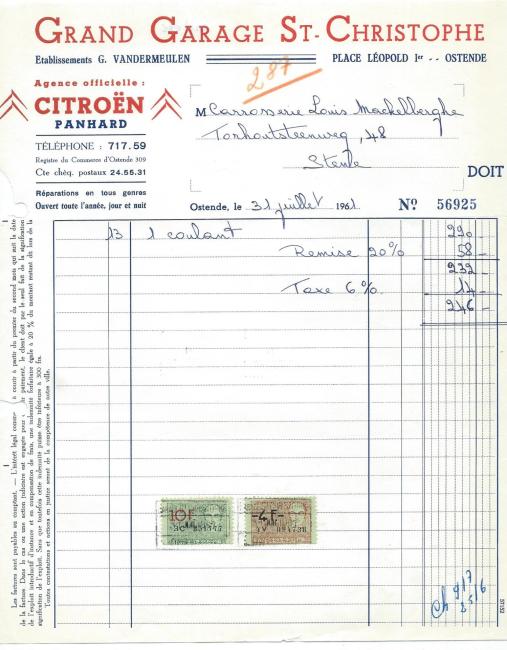 GRAND GARAGE ST-CHRISTOPHE
Etablissements G. VANDERMEULEN
PLACE LÉOPOLD Ier -- OSTENDE
287
Agence officielle :
CITROËN
PANHARD
TÉLÉPHONE : 717.59
Registre du Commerce d'Ostende 309
Cte chèq. postaux 24.55.31
Réparations en tous genres
Ouvert toute l'année, jour et nuit
M Carrosserie Louis Mackelberghe
Torhoutsteenweg, 48
Stene
DOIT
Ostende, le 31 juillet 1961
No 56925
13 1 coulant 290 -
Remise 20% 58 -
232 -
Taxe 6% 14 -
246 -
10F
-4F-
Les factures sont payables au comptant. — L'intérêt légal
de la facture. Dans le cas où une action judiciaire est engagée pour
de l'exploit introductif d'instance et en compensation de frais, une indemnité forfaitaire égale à 20 % du montant restant dû lors de la
signification de l'exploit. Sans que toutefois cette indemnité puisse être inférieure à 300 frs.
Toutes contestations et actions en justice seront de la compétence de notre ville.